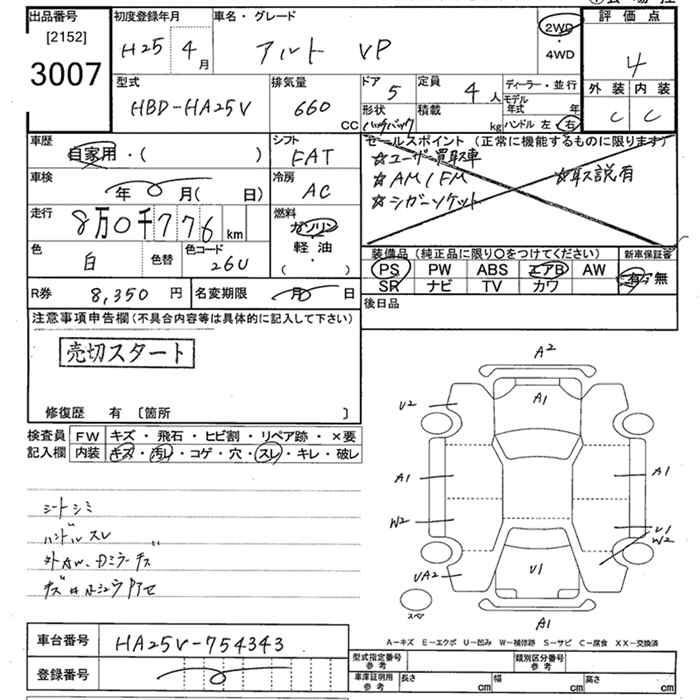 出品番号
[2152]
3007
初度登録年月
H25年4月
車名・グレード
アルト VP
2WD
・
4WD
評価点
4
外装 内装
C C
型式
HBD-HA25V
排気量
660 CC
ドア 5
形状 ハッチバック
定員 4人
積載 kg
ディーラー・並行
モデル年式 年
ハンドル 左・右
車歴
自家用・( )
車検
年 月( 日)
走行
8万0千776 km
色 白 色替
色コード 26U
シフト
FAT
冷房
AC
燃料
ガソリン
軽油
( )
セールスポイント (正常に機能するものに限ります)
☆ユーザー買取車
☆AM/FM ☆取説有
☆シガーソケット
装備品(純正品に限り○をつけてください) 新車保証書
PS PW ABS エアB AW 有・無
SR ナビ TV カワ
R券 8,350円 名変期限 月 日
後日品
注意事項申告欄(不具合内容等は具体的に記入して下さい)
売切スタート
修復歴 有 〔箇所 〕
検査員 FW キズ・飛石・ヒビ割・リペア跡・×要
記入欄 内装 キズ・汚レ・コゲ・穴・スレ・キレ・破レ
シートシミ
ハンドルスレ
A2
A1
U2
A1
A1
W2
U1
W2
U1
UA2
A1
スペア
A-キズ E-エクボ U-凹み W-補修跡 S-サビ C-腐食 XX-交換済
車台番号 HA25V-754343
登録番号
型式指定番号 参考
類別区分番号 参考
車庫証明用 参考 長さ cm 幅 cm 高さ cm